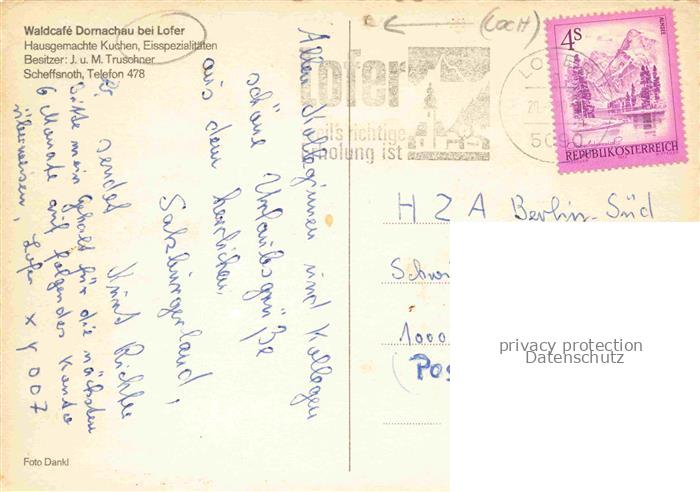 Waldcafé Dornachau bei Lofer
Hausgemachte Kuchen, Eisspezialitäten
Besitzer: J. u. M. Truschner
Scheffsnoth, Telefon 478
(LOCH)
4S
REPUBLIK ÖSTERREICH
Lofer
weil's richtige
Erholung ist
5090
Allen Kolleginnen und Kollegen
schöne Urlaubsgrüße
aus dem herrlichen
Salzburgerland,
sendet Kurt Richter
Bitte mein Gehalt für die nächsten
6 Monate auf folgendes Konto
überweisen, Lofer x y 007
HZA Berlin-Süd
1000
privacy protection
Datenschutz
Foto Dankl